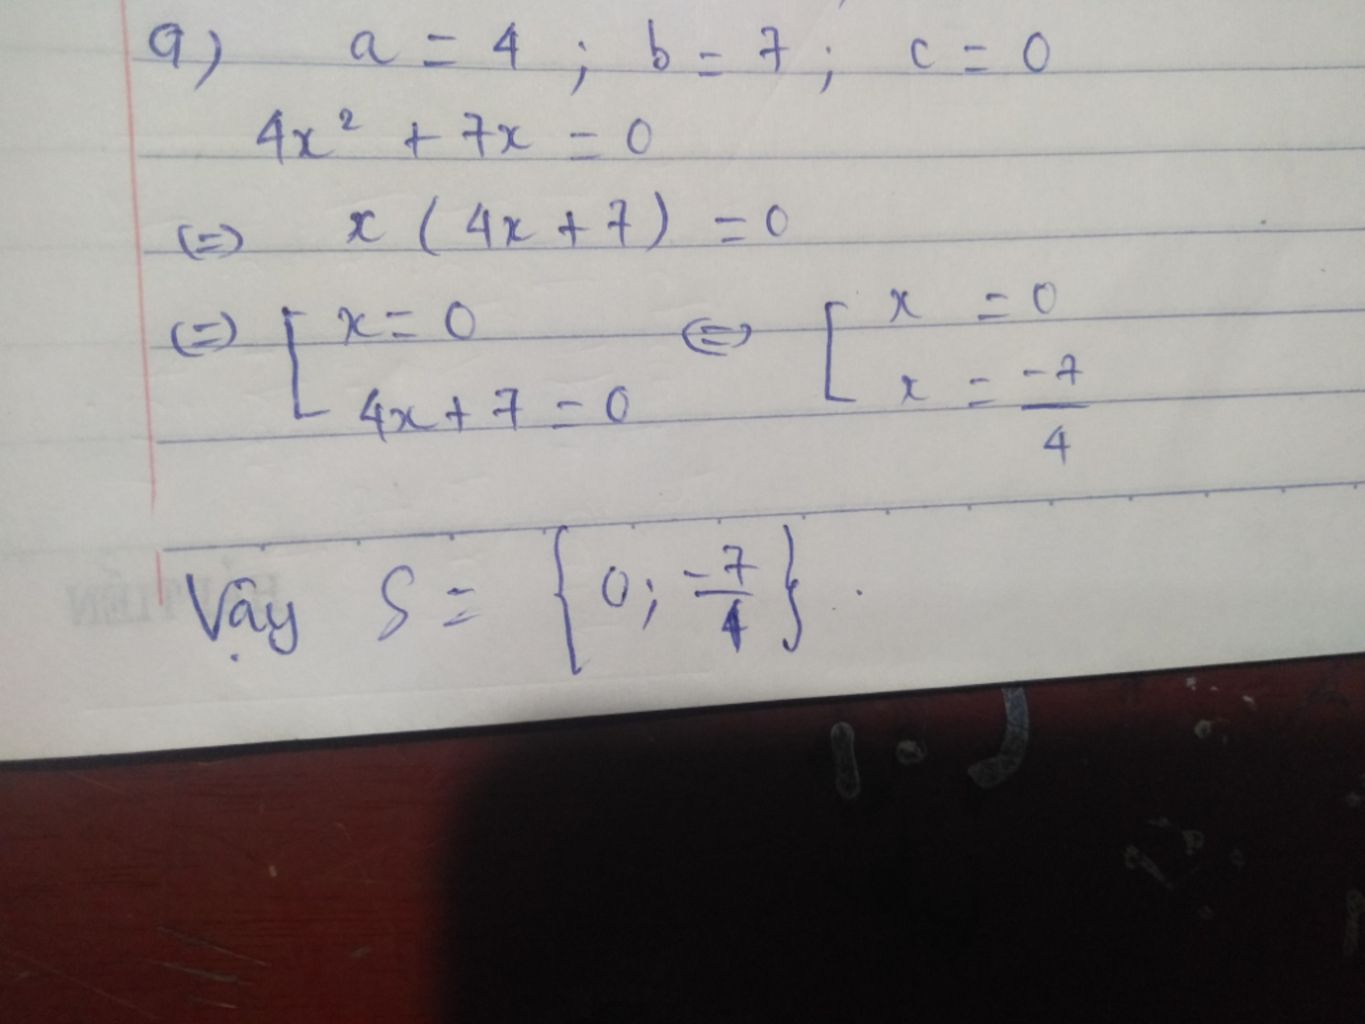 a) a = 4 ; b = 7 ; c = 0
4x² + 7x = 0
(=) x ( 4x + 7 ) = 0
(=) [ x = 0 (=) [ x = 0
4x + 7 = 0 x = -7/4
Vậy S = { 0; -7/4 } .